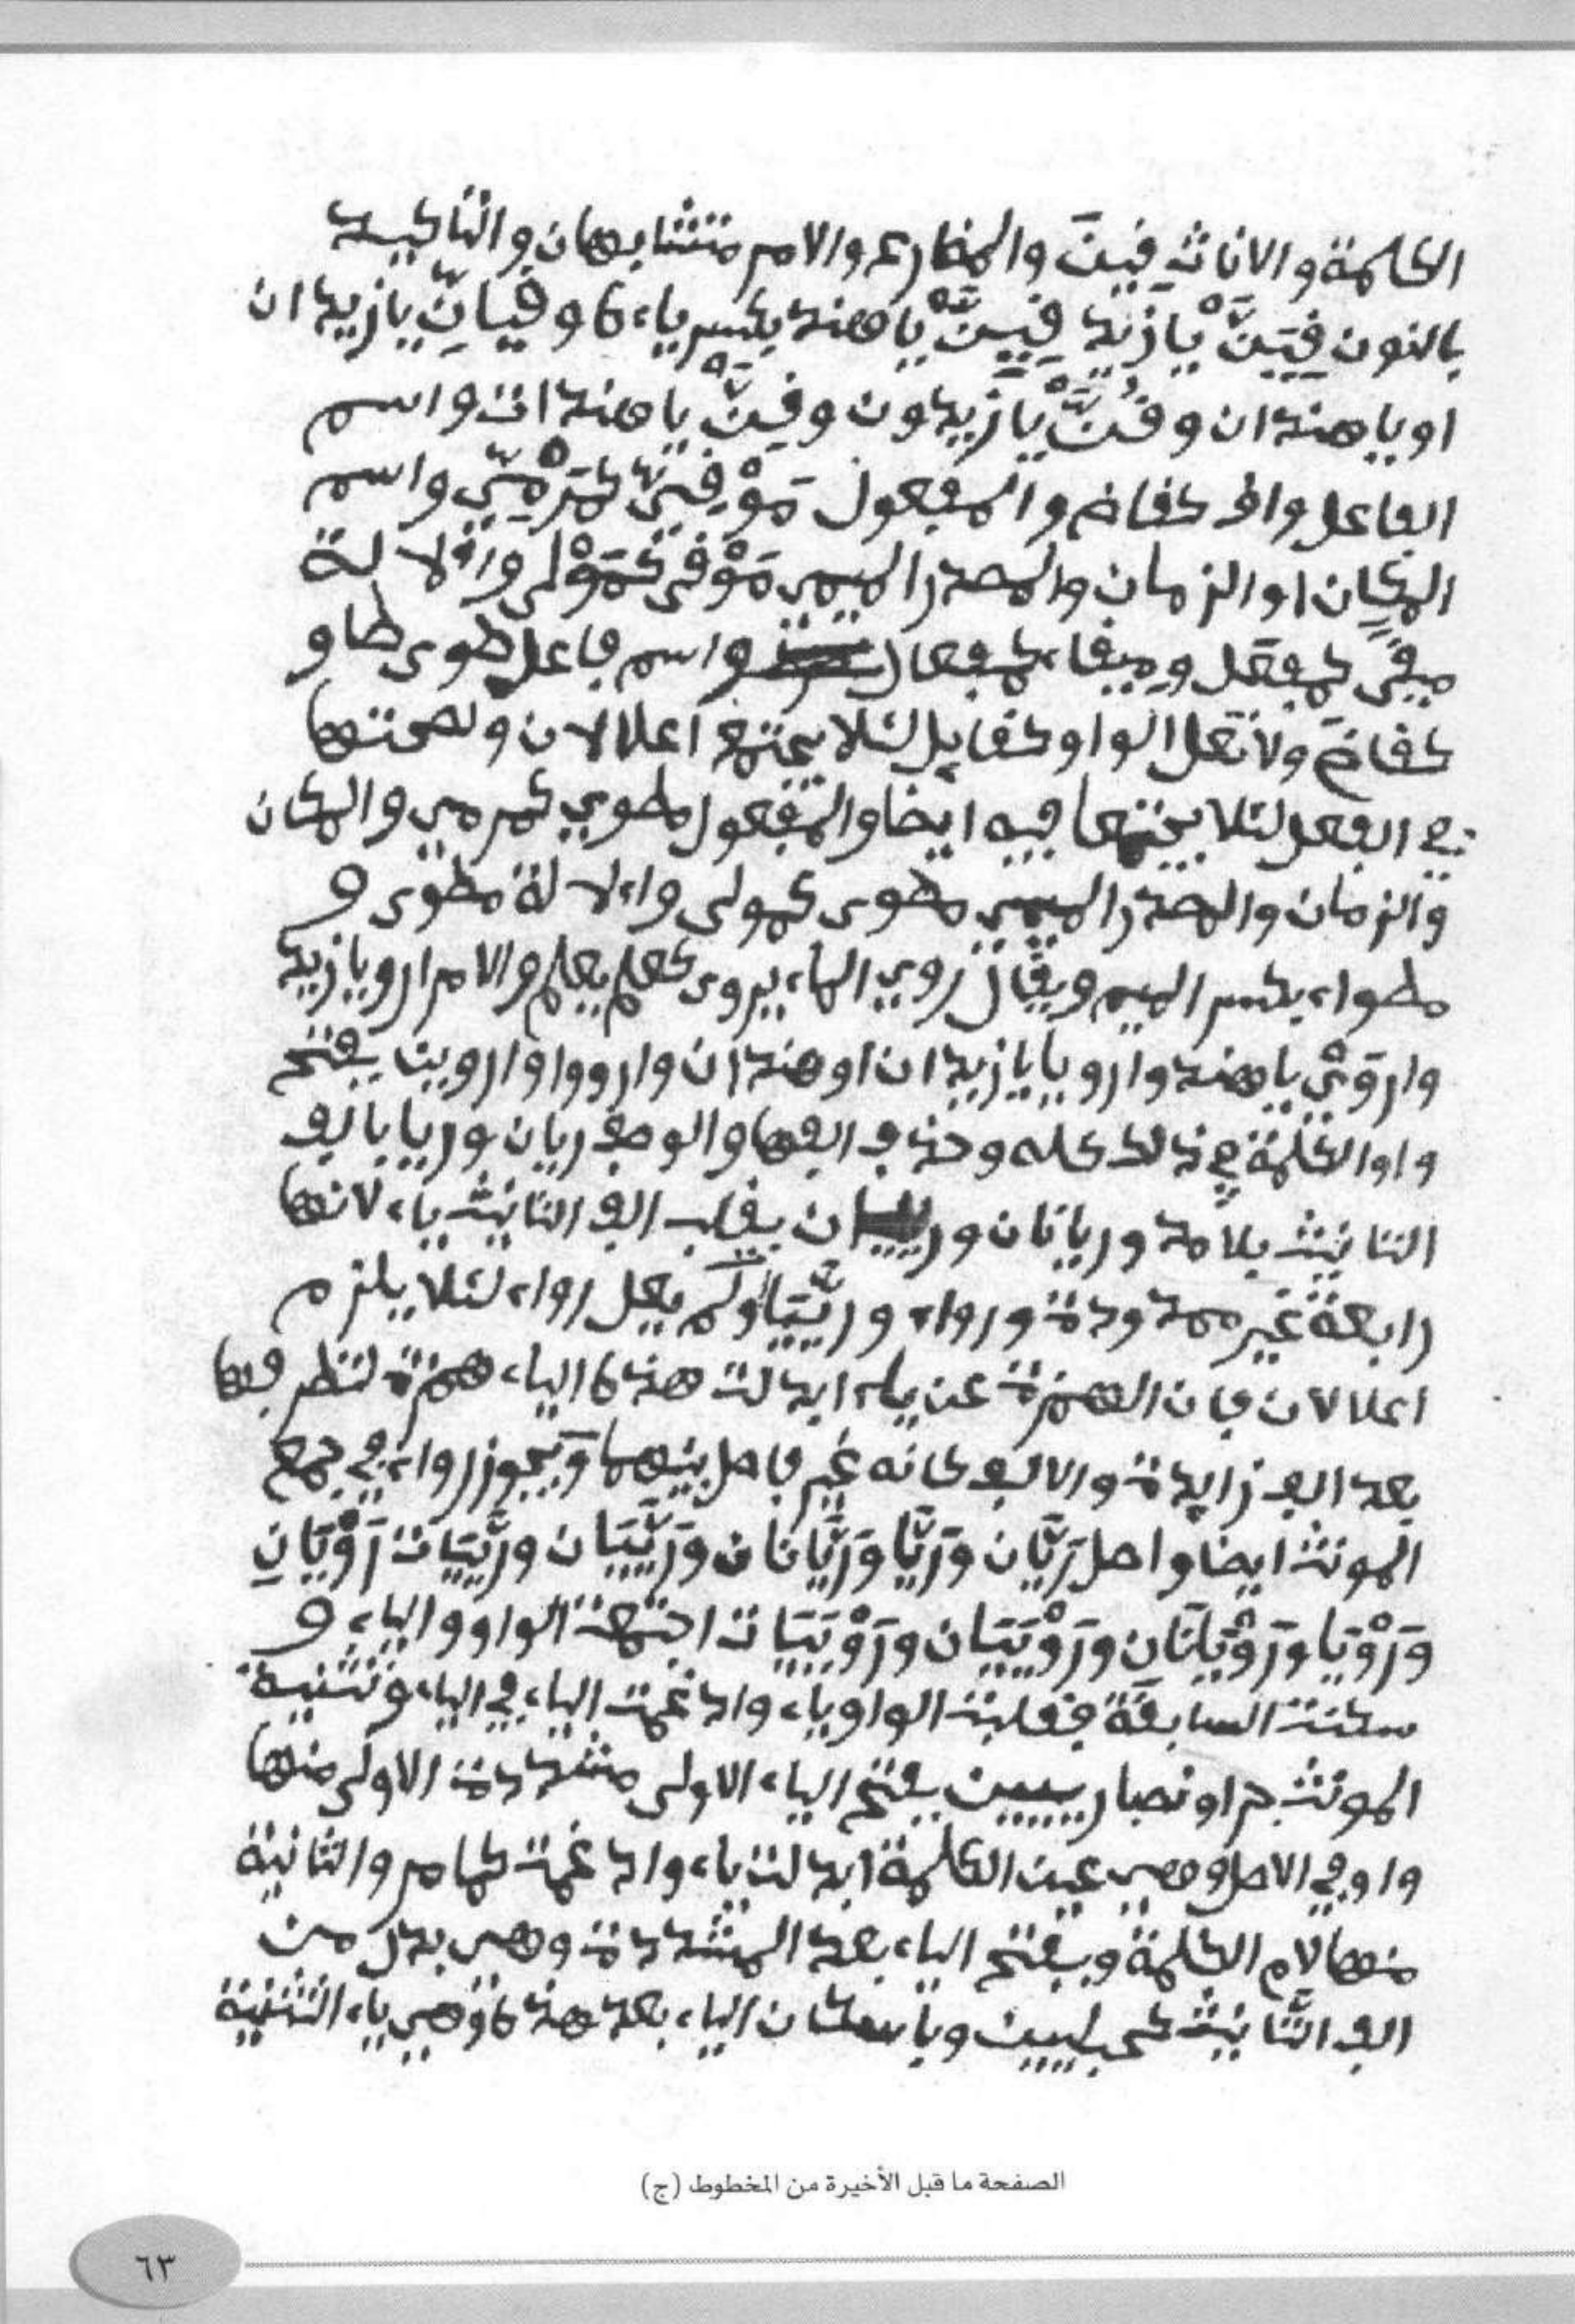 الكلمة والاناث فِيِنَ والمضارع والامر متشابهان والتاكيد
بالنون فِيَنَّ يا زيد فِيِنَّ يا هند بكسر ياءه وفِيَانِّ يا زيدان
او يا هندان وفُنَّ يا زيدون وفِينَّ يا هندات واسم
الفاعل واف كقاض والمفعول مَوْفِيّ كمَرْمِيّ واسم
المكان او الزمان والمصدر الميمي مَوْفى كمَوْلى والالة
ميفًى كمفعَل وميفاء كمفعال واسم فاعل طوى طاو
كقاض ولا تعل الواو كقايل لئلا يجتمع اعلالان ولصحتها
في الفعل لئلا يجتمعا فيه ايضا والمفعول مطوي كمرمي والمكان
والزمان والمصدر الميمي مطوى كمولى والالة مطوى و
مطواء بكسر الميم ويقال روي الماء يروى كعلم يعلم والامر ارو يا زيد
واروَيْ يا هند وارويا يا زيدان او هندان وارووا واروين بفتح
واو الكلمة في ذلك كله وحذف الفها والوصف ريان وريا بالف
التانيث بلا مد وريانان ورييان بقلب الف التانيث ياء لانها
رابعة غير ممدودة ورواء وريَّيَات ولم يعل رواء لئلا يلزم
اعلالان فان الهمزة عن ياء ابدلت هذه الياء همزة لتطرفها
بعد الف زايدة والالف كانه غير فاصل بينهما ويجوز رواء في جمع
المونث ايضا واصل رَيَّان ورَيَّا ورَيَّانان ورَيَّيَان ورَيَّيَات رَوْيَانِ
ورَوْيَا ورَوْيَانَانِ ورَوْيَيَان ورَوْيَيَات اجتمعت الواو والياء و
سكنت السابقة فقلبت الواو ياء وادغمت الياء في الياء وتثنية
المونث جرا ونصبا رييين بفتح الياء الاولى مشددة الاولى منها
واو في الاصل وهي عين الكلمة ابدلت ياء وادغمت كما مر والثانية
منها لام الكلمة وبفتح الياء بعد المشددة وهي بدل من
الف التانيث كحبليين وباسكان الياء بعد هذه وهي ياء التثنية
الصفحة ما قبل الأخيرة من المخطوط (ج)
٦٣